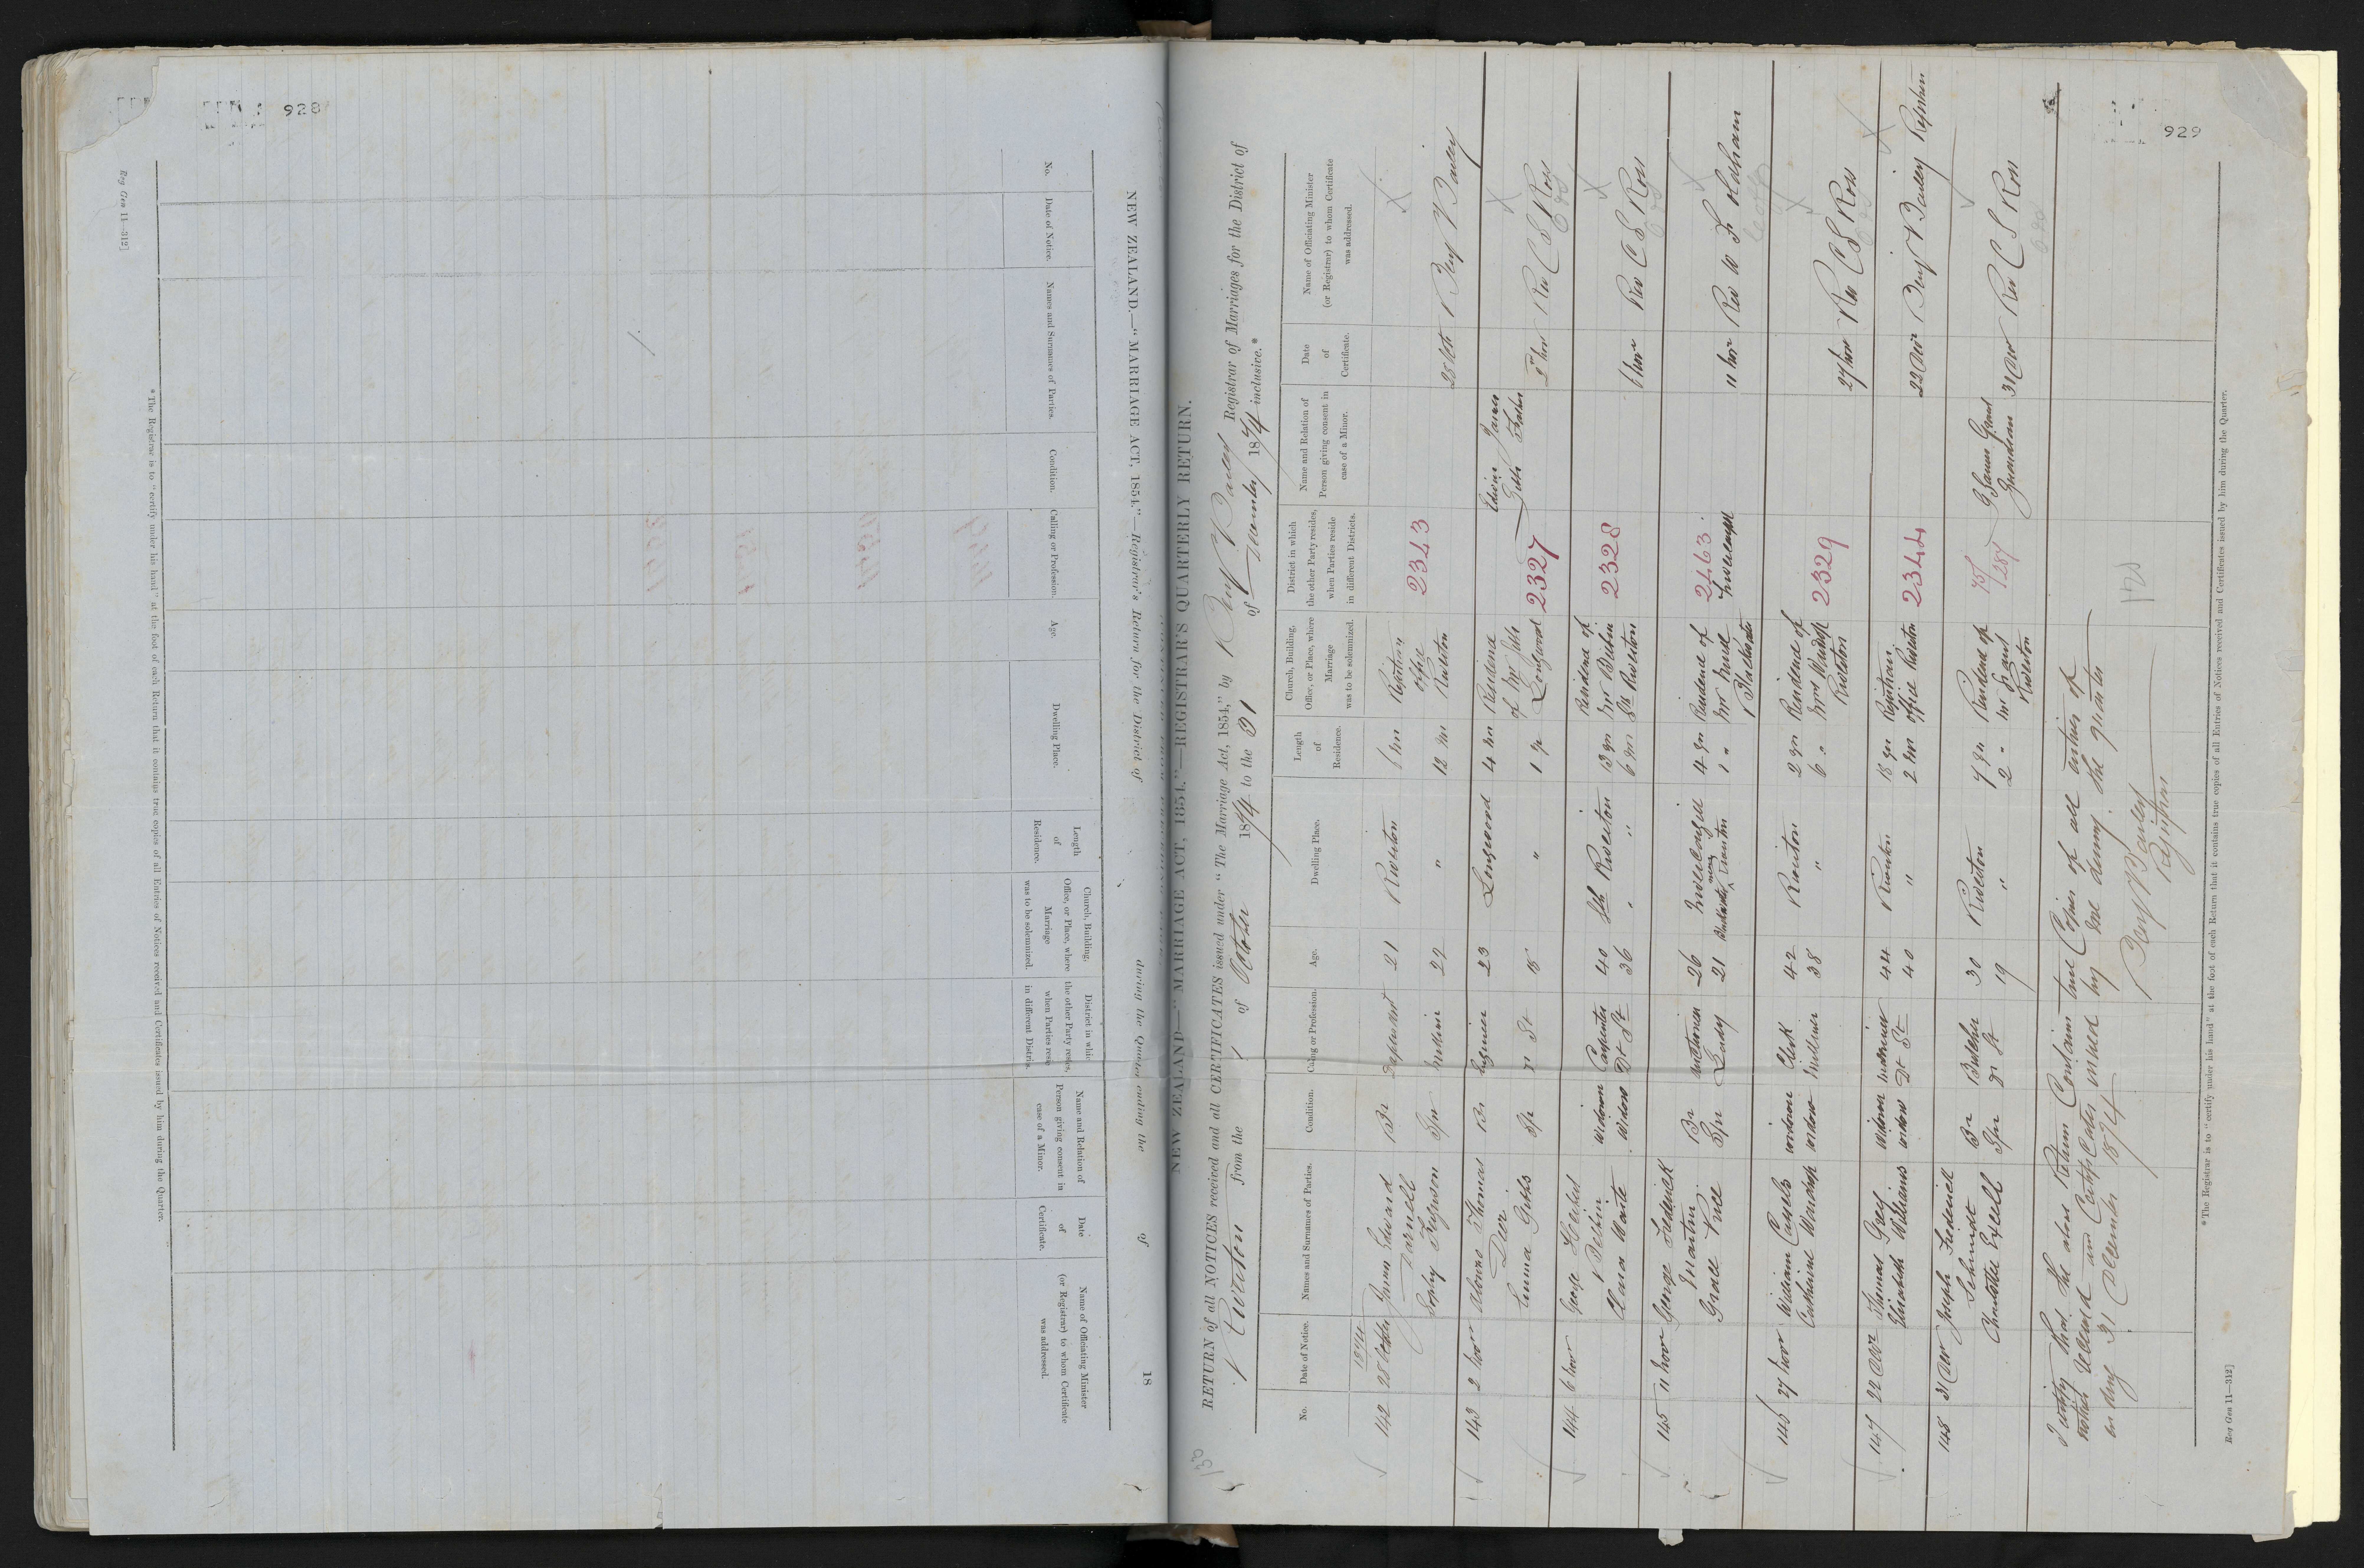 928
Reg Gen 11—312]
NEW ZEALAND.—"MARRIAGE ACT, 1854."—Registrar's Return for the District of during the Quarter ending the of 18
No.
Date of Notice.
Names and Surnames of Parties.
Condition.
Calling or Profession.
Age.
Dwelling Place.
Length of Residence.
Church, Building, Office, or Place, where Marriage was to be solemnized.
District in which the other Party resides, when Parties reside in different Districts.
Name and Relation of Person giving consent in case of a Minor.
Date of Certificate.
Name of Officiating Minister (or Registrar) to whom Certificate was addressed.
*The Registrar is to "certify under his hand" at the foot of each Return that it contains true copies of all Entries of Notices received and Certificates issued by him during the Quarter.
929
130
NEW ZEALAND—"MARRIAGE ACT, 1854."—REGISTRAR'S QUARTERLY RETURN.
RETURN of all NOTICES received and all CERTIFICATES issued under "The Marriage Act, 1854," by Benj Bailey Registrar of Marriages for the District of
Riverton from the 1 of October 1874 to the 31 of December 1874 inclusive.*
No.
Date of Notice.
Names and Surnames of Parties.
Condition.
Calling or Profession.
Age.
Dwelling Place.
Length of Residence.
Church, Building, Office, or Place, where Marriage was to be solemnized.
District in which the other Party resides, when Parties reside in different Districts.
Name and Relation of Person giving consent in case of a Minor.
Date of Certificate.
Name of Officiating Minister (or Registrar) to whom Certificate was addressed.
1874
142 Edward Br 21 Riverton 6 Registrar's 2343
Darnell office
Ferguson Spr " 12 Riverton Benj Bailey
143 2 Nov Alonzo Thomas Br Engineer 23 Longwood 4 Residence Edwin James
of Mr Gibbs Gibbs Father
Emma Gibbs Spr 18 " 1 Longwood 2327 Rev C S Ross
144 6 Nov George Herbert Widower Carpenter 40 Sth Riverton 13 yrs Residence of 2328
Widow 36 " " Sth Riverton 6 Nov Rev C S Ross
145 11 Nov George Frederick Br 26 4 yrs Residence of 2463
Martin Mr
Grace Price Spr Lady 21 1 " 11 Nov Rev W Oldham
146 27 Nov William Widower Clerk 42 Riverton 2 yrs Residence of 2329
Catherine Widow Milliner 38 " 6 " Mrs
Riverton 27 Nov Rev C S Ross
147 22 Dec Thomas Grey Widower 44 Riverton 18 yrs Registrars 2344
Elizabeth Williams Widow 40 " 2 office Riverton 22 Dec Benj Bailey
148 31 Dec Joseph Frederick Br Butcher 30 Riverton 7 yrs Residence of James Grant
Schmidt Mr Grant Guardian
Excell Spr 19 " 2 " Riverton 31 Dec Rev C S Ross
I certify that the above Return Contains true Copies of all entries of
notices received and Certificates issued by me during the quarter
ending 31 December 1874
Benj Bailey
Registrar
*The Registrar is to "certify under his hand" at the foot of each Return that it contains true copies of all Entries of Notices received and Certificates issued by him during the Quarter.
Reg Gen 11—312]